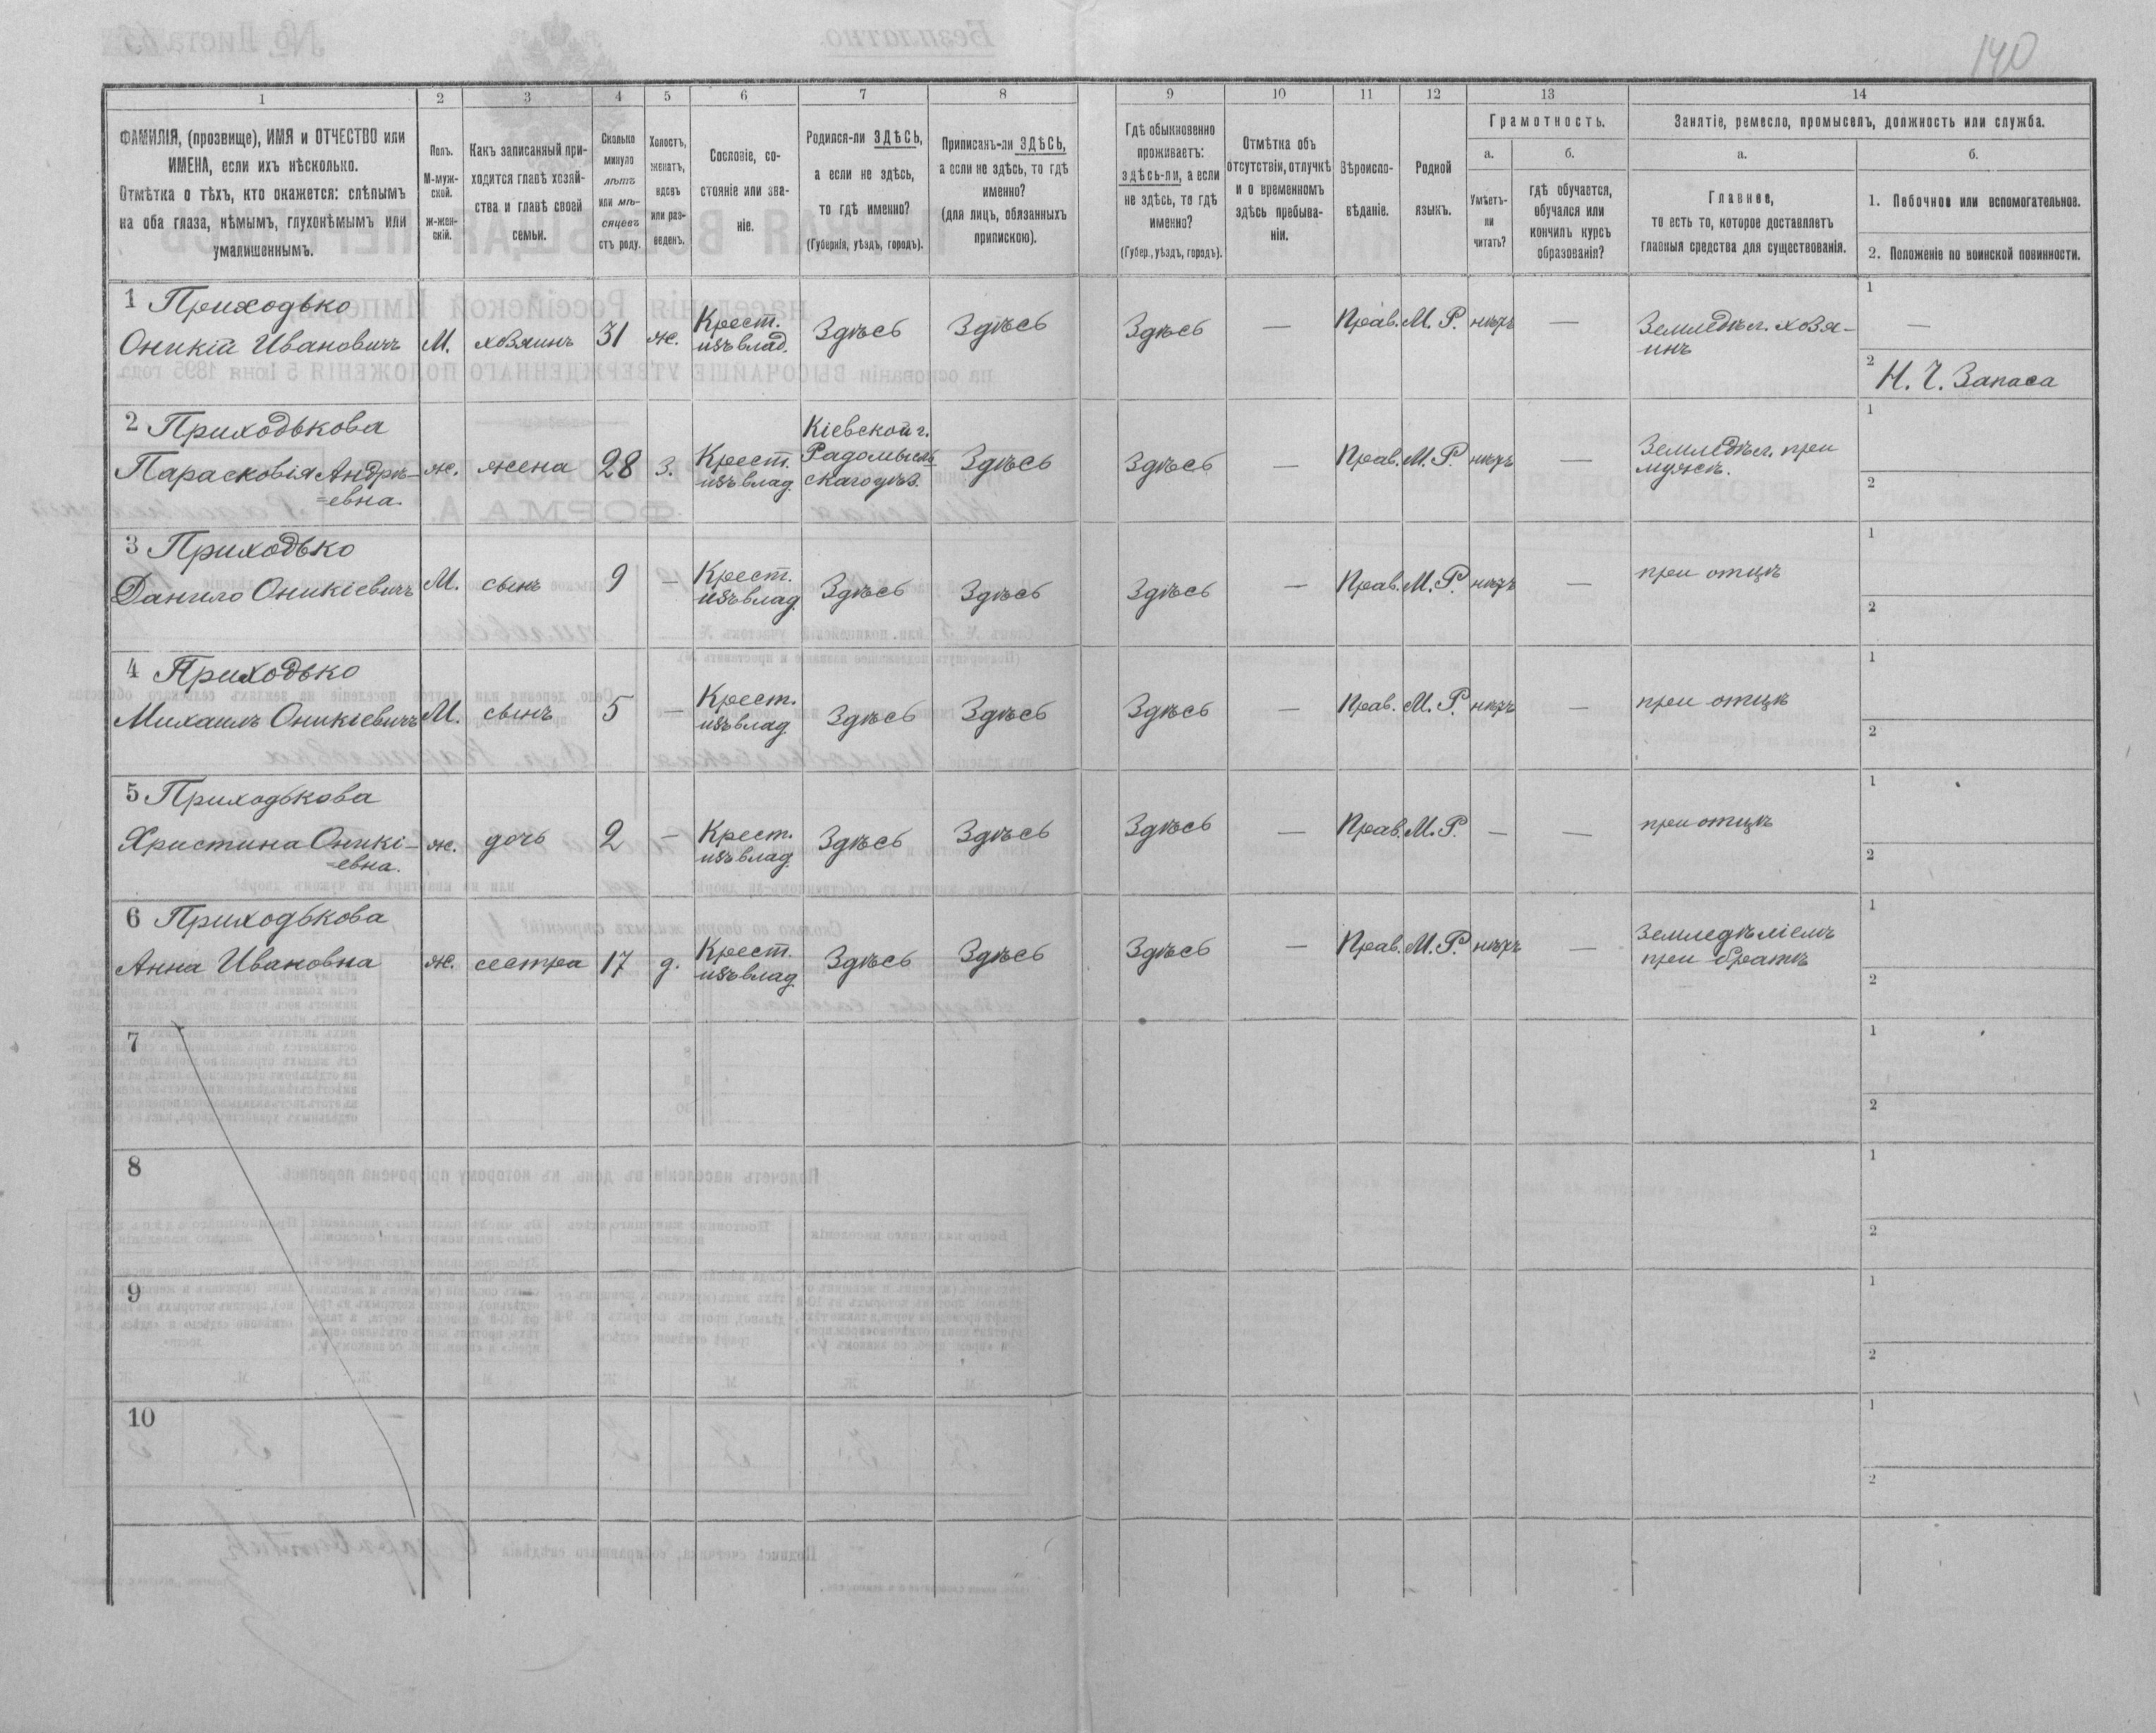 140
1 2 3 4 5 6 7 8 9 10 11 12 13 14
ФАМИЛІЯ, (прозвище), ИМЯ и ОТЧЕСТВО или
ИМЕНА, если ихъ нѣсколько.
Отмѣтка о тѣхъ, кто окажется: слѣпымъ
на оба глаза, нѣмымъ, глухонѣмымъ или
умалишеннымъ.
Полъ.
М-муж-
ской.
ж-жен-
скій.
Какъ записанный при-
ходится главѣ хозяй-
ства и главѣ своей
семьи.
Сколько
минуло
лѣтъ
или мѣ-
сяцевъ
отъ роду.
Холостъ,
женатъ,
вдовъ
или раз-
веденъ.
Сословіе, со-
стояніе или зва-
ніе.
Родился-ли ЗДѢСЬ,
а если не здѣсь,
то гдѣ именно?
(Губернія, уѣздъ, городъ).
Приписанъ-ли ЗДѢСЬ,
а если не здѣсь, то гдѣ
именно?
(для лицъ, обязанныхъ
припискою).
Гдѣ обыкновенно
проживаетъ:
здѣсь-ли, а если
не здѣсь, то гдѣ
именно?
(Губер., уѣздъ, городъ).
Отмѣтка объ
отсутствіи, отлучкѣ
и о временномъ
здѣсь пребыва-
ніи.
Вѣроиспо-
вѣданіе.
Родной
языкъ.
Грамотность.
а. б.
Умѣетъ-
ли
читать?
гдѣ обучается,
обучался или
кончилъ курсъ
образованія?
Занятіе, ремесло, промыселъ, должность или служба.
а. б.
Главное,
то есть то, которое доставляетъ
главныя средства для существованія.
1. Побочное или вспомогательное.
2. Положеніе по воинской повинности.
1 Приходько
Оникій Ивановичъ М. хозяинъ 31 ж. Крест. изъ влад. Здѣсь Здѣсь Здѣсь — Прав. М. Р. нѣтъ — Земледѣл. хозя-
инъ
1 —
2 Н. Ч. Запаса
2 Приходькова
Парасковія Андрѣ-
=евна. ж. жена 28 з. Крест. изъ влад. Кіевской г.
Радомысль-
скаго уѣз. Здѣсь Здѣсь — Прав. М. Р. нѣтъ — Земледѣл. при
мужѣ.
1
2
3 Приходько
Данило Оникіевичъ М. сынъ 9 — Крест. изъ влад. Здѣсь Здѣсь Здѣсь — Прав. М. Р. нѣтъ — при отцѣ
1
2
4 Приходько
Михаилъ Оникіевичъ М. сынъ 5 — Крест. изъ влад. Здѣсь Здѣсь Здѣсь — Прав. М. Р. нѣтъ — при отцѣ
1
2
5 Приходькова
Христина Оникі-
=евна. ж. дочь 2 — Крест. изъ влад. Здѣсь Здѣсь Здѣсь — Прав. М. Р. — — при отцѣ
1
2
6 Приходькова
Анна Ивановна ж. сестра 17 д. Крест. изъ влад. Здѣсь Здѣсь Здѣсь — Прав. М. Р. нѣтъ — Земледѣліемъ
при братѣ
1
2
7
1
2
8
1
2
9
1
2
10
1
2